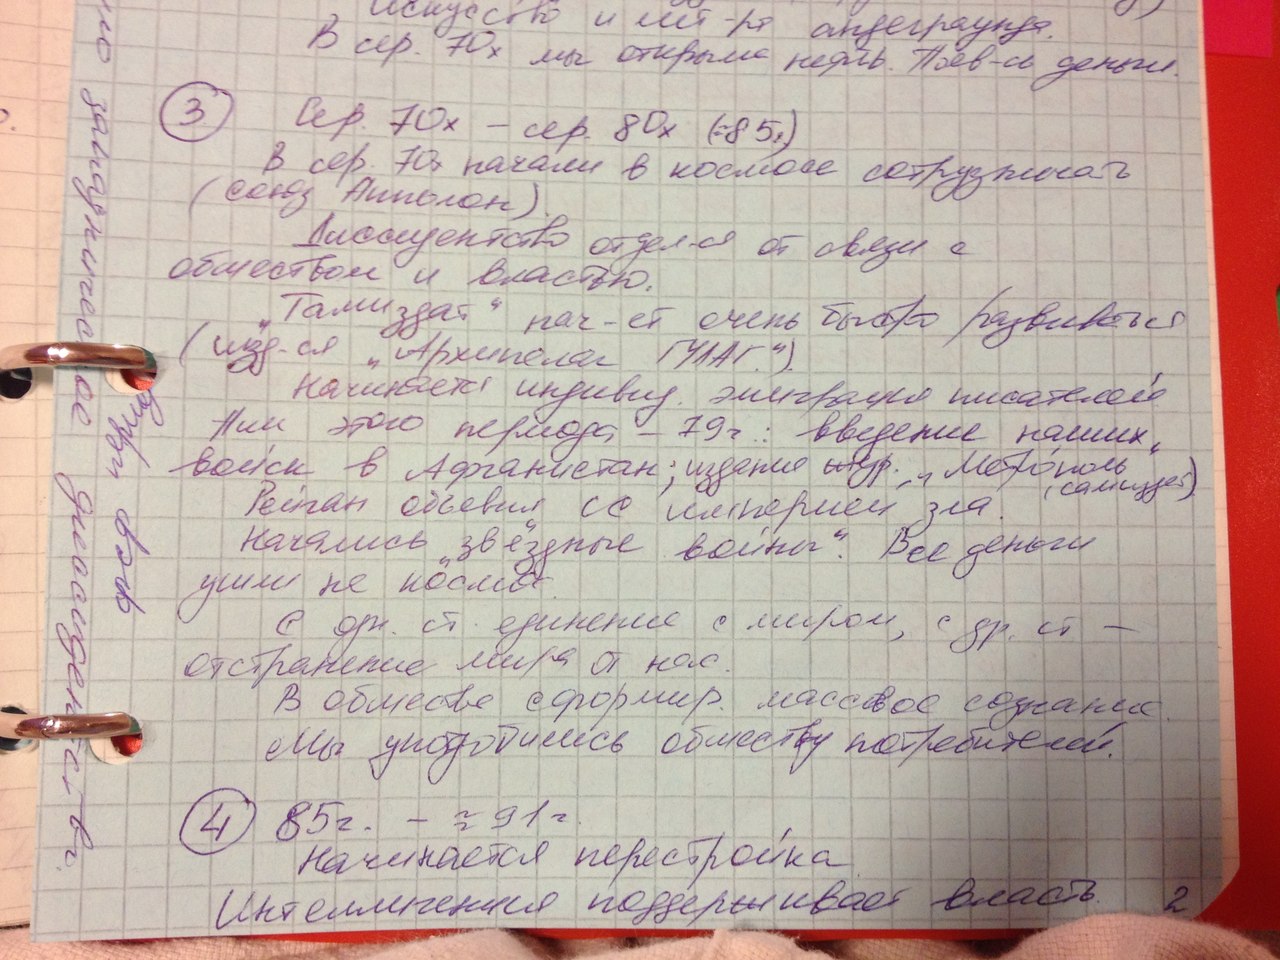 Искусство и лит-ра андеграунда.
В сер. 70х мы открыли нефть. Появ-сь деньги.
3 Сер. 70х – сер. 80х (≈85г)
В сер. 70х начали в космосе сотрудничать
(союз Апполон).
Диссидентство отдел-ся от связи с
обществом и властью.
„Тамиздат“ нач-ет очень быстро развиваться
(изд-ся „Архипелаг ГУЛАГ“).
Начинается индивид. эмиграция писателей.
Пик этого периода – 79г.: введение наших
войск в Афганистан; издание жур. „Метрополь“
(самиздат).
Рейган объявил СС империей зла.
Начались „звёздные войны“. Все деньги
ушли не космос.
С одн. ст. единение с миром, с др. ст –
отстранение мира от нас.
В обществе сформир. массовое сознание.
Мы уподобились обществу потребителей.
4 85г. – ≈ 91г.
Начинается перестройка
Интеллигенция поддерживает власть.
2
западническое диссидентство.